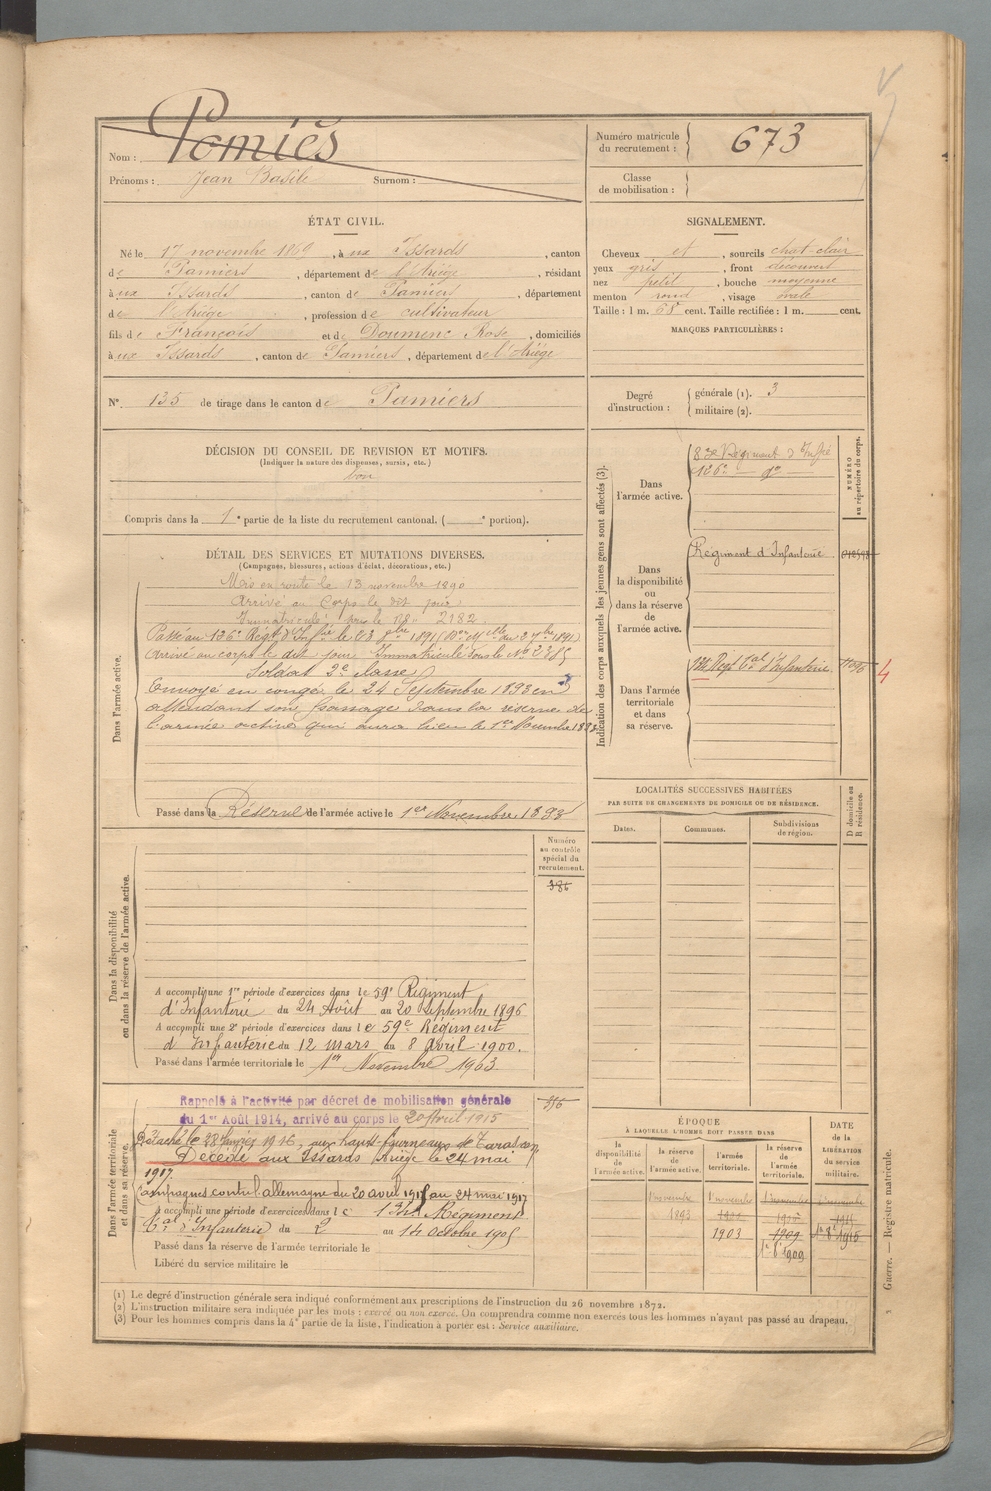 Nom : Pomiès
Prénoms : Jean Basile Surnom :
Numéro matricule du recrutement : 673
Classe de mobilisation :
ÉTAT CIVIL.
Né le 17 novembre 1869, à ux Issards, canton
de Pamiers, département de l'Ariége, résidant
à ux Issards, canton de Pamiers, département
de l'Ariége, profession de cultivateur
fils de François et de Doumenc Rose, domiciliés
à ux Issards, canton de Pamiers, département de l'Ariége
SIGNALEMENT.
Cheveux et, sourcils chat-clair
yeux gris, front découvert
nez petit, bouche moyenne
menton rond, visage ovale
Taille : 1 m. 68 cent. Taille rectifiée : 1 m. cent.
MARQUES PARTICULIÈRES :
N° 135 de tirage dans le canton de Pamiers
Degré d'instruction : générale (1). 3
militaire (2).
DÉCISION DU CONSEIL DE REVISION ET MOTIFS.
(Indiquer la nature des dispenses, sursis, etc.)
bon
Compris dans la 1e partie de la liste du recrutement cantonal. ( e portion).
DÉTAIL DES SERVICES ET MUTATIONS DIVERSES.
(Campagnes, blessures, actions d'éclat, décorations, etc.)
Dans l'armée active.
Mis en route le 13 novembre 1890
Arrivé au Corps le dit jour
Immatriculé sous le N° 2182
Passé au 126e Régt d'Infie le 23 8bre 1891
Arrivé au corps le dit jour Immatriculé sous le N° 2385
Soldat 2e classe
Envoyé en congé le 24 Septembre 1893 en
attendant son passage dans la réserve de
l'armée active qui aura lieu le 1er Novembre 1893
Passé dans la Réserve de l'armée active le 1er Novembre 1893
Indication des corps auxquels les jeunes gens sont affectés (3).
NUMÉRO au répertoire du corps.
Dans l'armée active.
83e Régiment d'Infie
126e — do —
Dans la disponibilité ou dans la réserve de l'armée active.
Régiment d'Infanterie
Dans l'armée territoriale et dans sa réserve.
Régt tal d'Infanterie
4
LOCALITÉS SUCCESSIVES HABITÉES
PAR SUITE DE CHANGEMENTS DE DOMICILE OU DE RÉSIDENCE.
Dates. Communes. Subdivisions de région. D domicile ou R résidence.
Numéro au contrôle spécial du recrutement.
386
Dans la disponibilité ou dans la réserve de l'armée active.
A accompli une 1re période d'exercices dans le 59e Régiment
d'Infanterie du 24 Août au 20 Septembre 1896
A accompli une 2e période d'exercices dans le 59e Régiment
d'Infanterie du 12 mars au 8 Avril 1900.
Passé dans l'armée territoriale le 1er Novembre 1903
Dans l'armée territoriale et dans sa réserve.
Rappelé à l'activité par décret de mobilisation générale
du 1er Août 1914, arrivé au corps le 20 Avril 1915
Détaché le 28 1916, aux hauts-fourneaux de Tarascon
Décédé aux Issards Ariége le 24 mai
1917
Campagnes contre l'allemagne du 20 avril 1915 au 24 mai 1917
A accompli une période d'exercices dans le 134e Régiment
tal d'Infanterie du 2 au 14 Octobre 1905
Passé dans la réserve de l'armée territoriale le
Libéré du service militaire le
ÉPOQUE
À LAQUELLE L'HOMME DOIT PASSER DANS
la disponibilité de l'armée active. la réserve de l'armée active. l'armée territoriale. la réserve de l'armée territoriale. DATE de la LIBÉRATION du service militaire.
1 novembre 1 novembre 1 novembre 1 novembre
1893
1903 1909
1909
(1) Le degré d'instruction générale sera indiqué conformément aux prescriptions de l'instruction du 26 novembre 1872.
(2) L'instruction militaire sera indiquée par les mots : exercé ou non exercé. On comprendra comme non exercés tous les hommes n'ayant pas passé au drapeau.
(3) Pour les hommes compris dans la 4e partie de la liste, l'indication à porter est : Service auxiliaire.
Guerre. — Registre matricule.